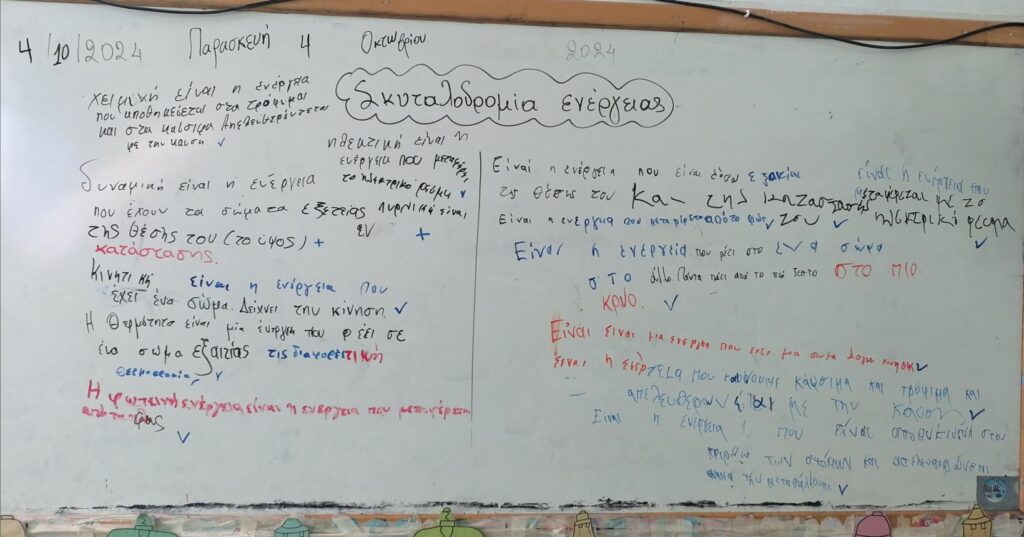 4/10/2024 Παρασκευή 4 Οκτωβρίου 2024
Σκυταλοδρομία ενέργειας
χειμική είναι η ενέργεια
που αποθηκεύεται στα τρόφιμα
και στα καύσιμα
με την καυση ✓
ηλεκτική είναι η
ενέργεια που μεταφέρει
το ηλεκτρικό ρεύμα ✓
δυναμική είναι η ενέργεια
που έχουν τα σώματα εξετείας Πυρηνική είναι
της θέσης του (το ύψος) + εν +
κατάστασης.
Κινητική είναι η ενέργεια που
έχει ένα σώμα. Δείχνει την κίνηση. ✓
Η θερμότητα είναι μία ένεργεια που ρέει σε
ένα σώμα εξαιτίας τις διαφορετική
θερμοκρασία, ✓
Η φωτεινη ενέργεια είναι η ενεργεια που μεταφέρεται
από το φως
✓
Είναι η ενέργεια που είναι
της θέσης του Και της καταστασης
του ✓
είναι η ενέργεια που
μεταφέρεται με το
ηλεκτρικό ρεύμα
✓
Είναι η ενεργια που μεταφέρεται από το φως ✓
Είναι η ενέργεια που ρέει στο ένα σώμα
στο άλλο. Πάντα πάει από το πιο ζεστο στο πιο
κρυο. ✓
Είναι ειναι μια ενεργεια που εχει μια σωμα λογω κινησης ✓
είναι η ενέργεια που καύσιμα και τρόφιμα και
απελευθερώνεται με την καυση ✓
Είναι η ενέργεια που είναι στον
πυρήνα των και απελευθερώνεται
την ✓